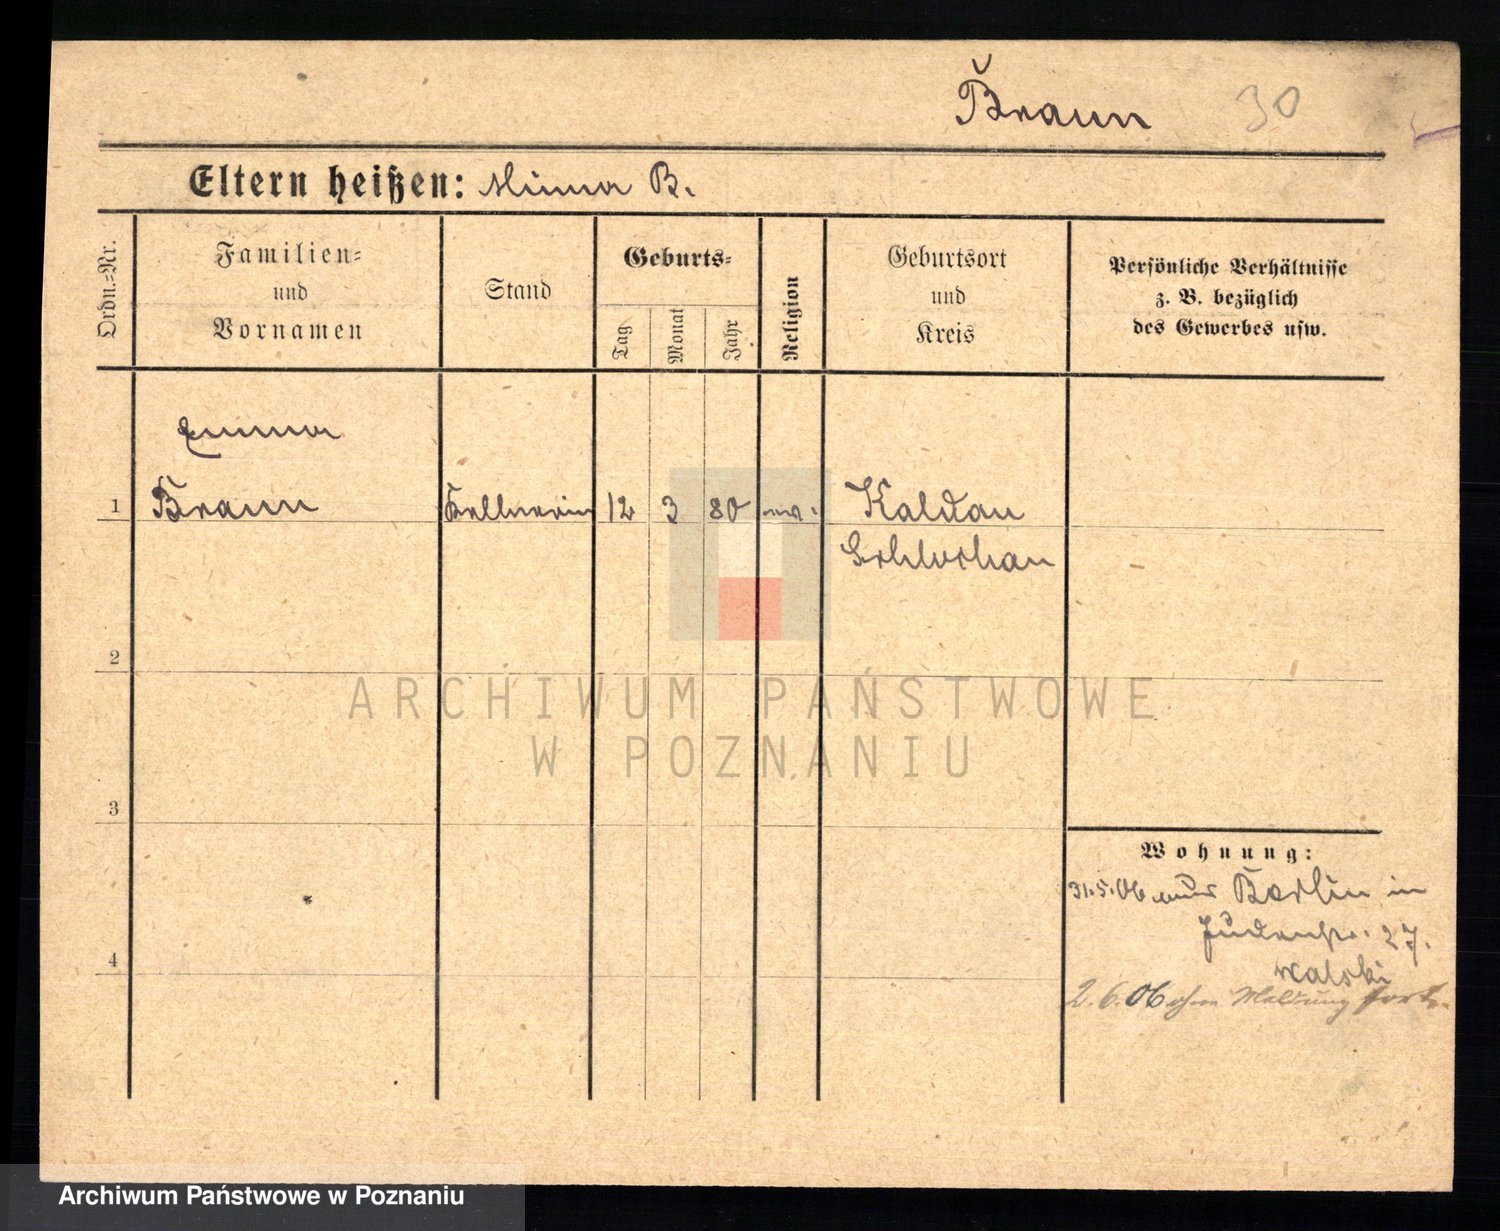 Braun 30
Eltern heißen: Minna B.
Ordn.-Nr.
Familien-
und
Vornamen
Stand
Geburts-
Tag
Monat
Jahr
Religion
Geburtsort
und
Kreis
Persönliche Verhältnisse
z. B. bezüglich
des Gewerbes usw.
Emma
1 Braun Kellnerin 12 3 80 ev. Kaldau
Schlochau
2
ARCHIWUM PAŃSTWOWE
W POZNANIU
3
Wohnung:
31.5.06 aus Berlin in
Judenstr. 27.
walski
4
2.6.06 ohne Meldung fort.
Archiwum Państwowe w Poznaniu